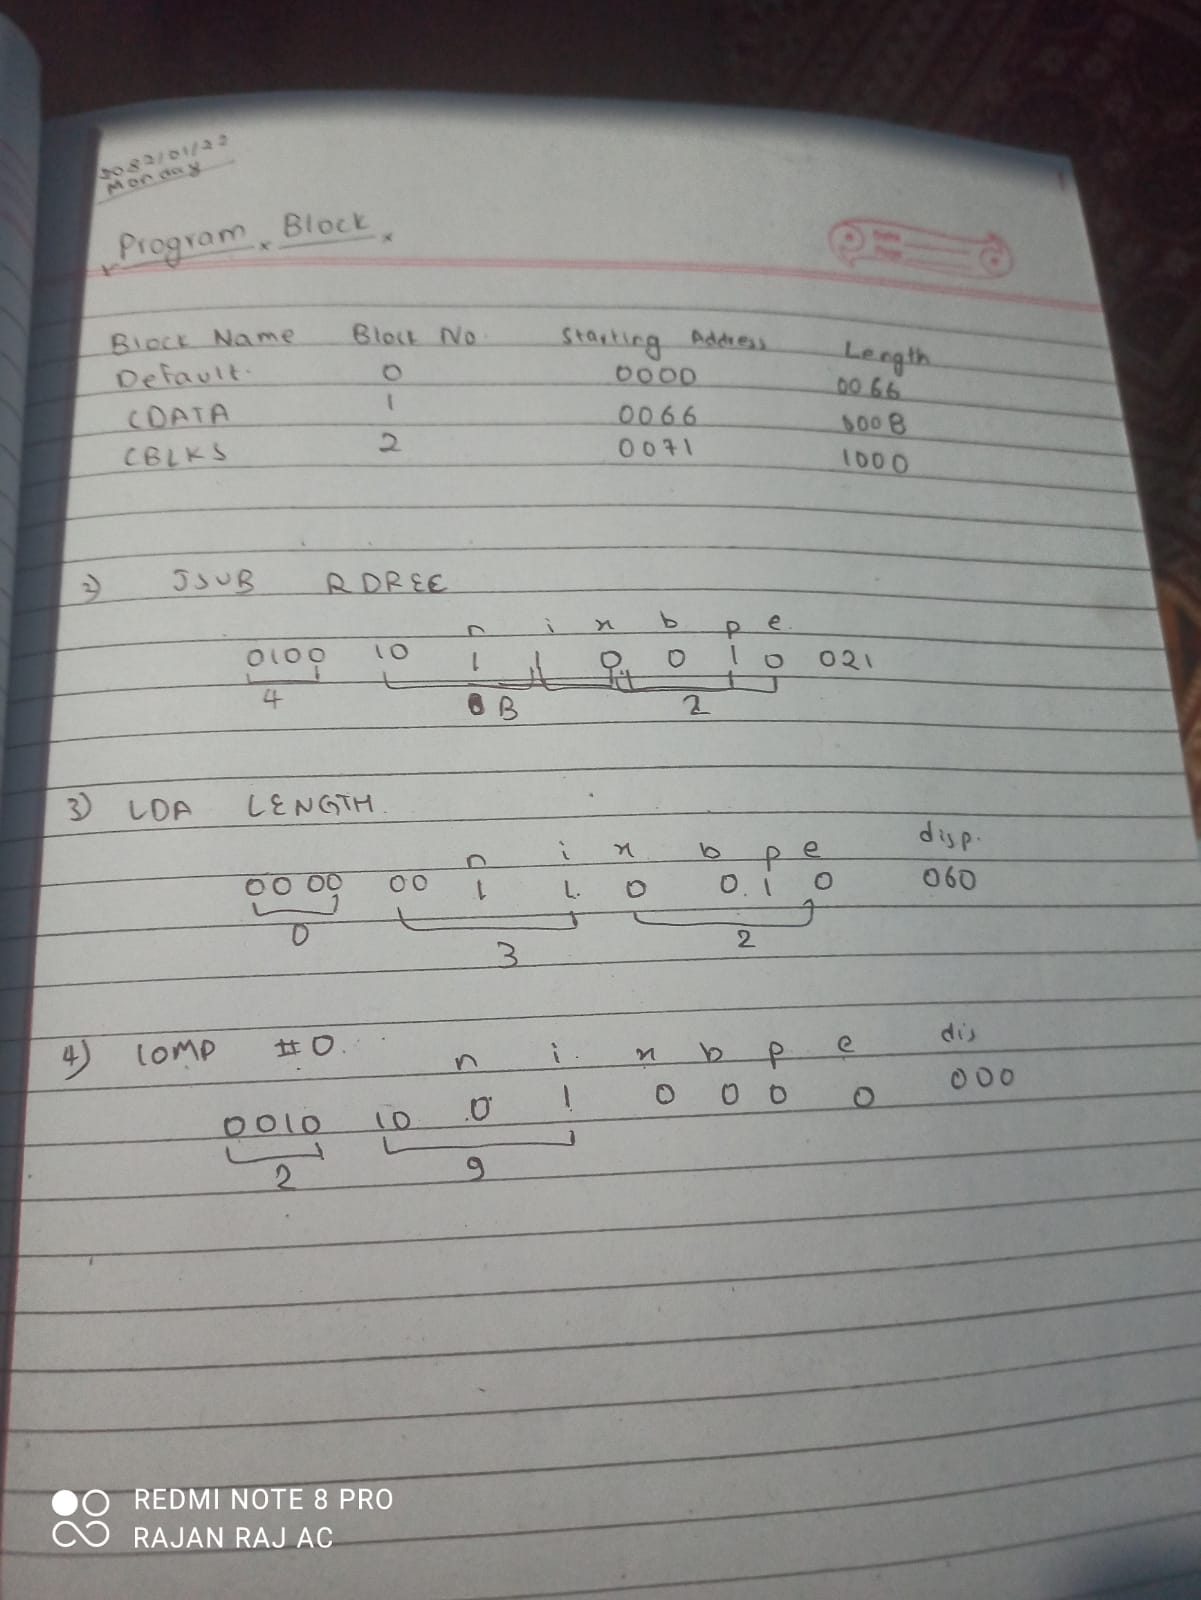 2082/01/22
Monday
Program Block
Block Name Block No. Starting Address Length
Default. 0 0000 0066
CDATA 1 0066 000B
CBLKS 2 0071 1000
2) JSUB RDREE
n i x b p e.
0100 10 1 1 0 0 1 0 021
4 B 2
3) LDA LENGTH.
n i x b p e disp.
0000 00 1 1 0 0.1 0 060
0 3 2
4) COMP #0.
n i. x b p e dis
0010 10 0 1 0 0 0 0 000
2 9
REDMI NOTE 8 PRO
RAJAN RAJ AC